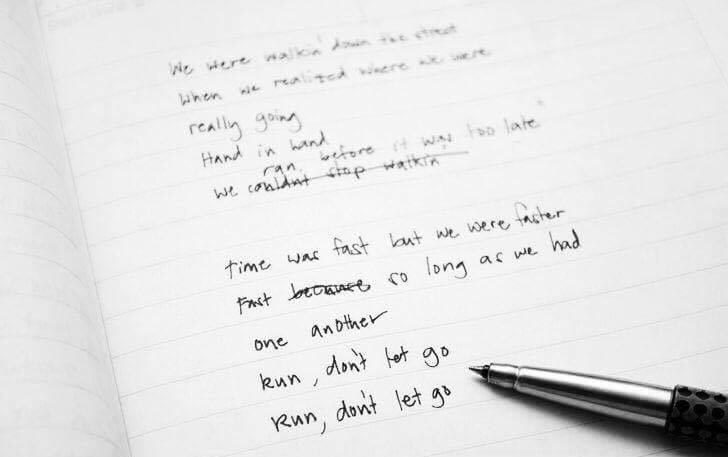 We were walkin' down the street
When we realized where we were
really going
Hand in hand
ran before it was too late
we couldn't stop walkin
Time was fast but we were faster
Fast because so long as we had
one another
Run, don't let go
Run, don't let go